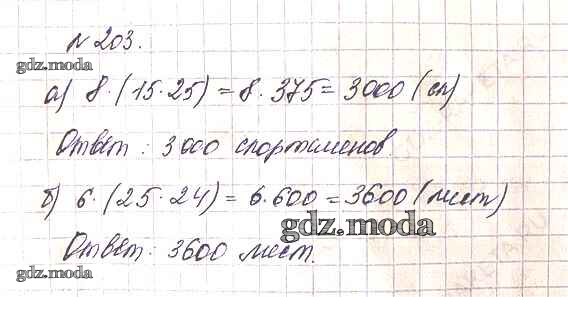 № 203.
gdz.moda
а) 8·(15·25) = 8·375 = 3000 (сп)
Ответ: 3000 спортсменов.
б) 6·(25·24) = 6·600 = 3600 (мест)
gdz.moda
Ответ: 3600 мест.
gdz.moda